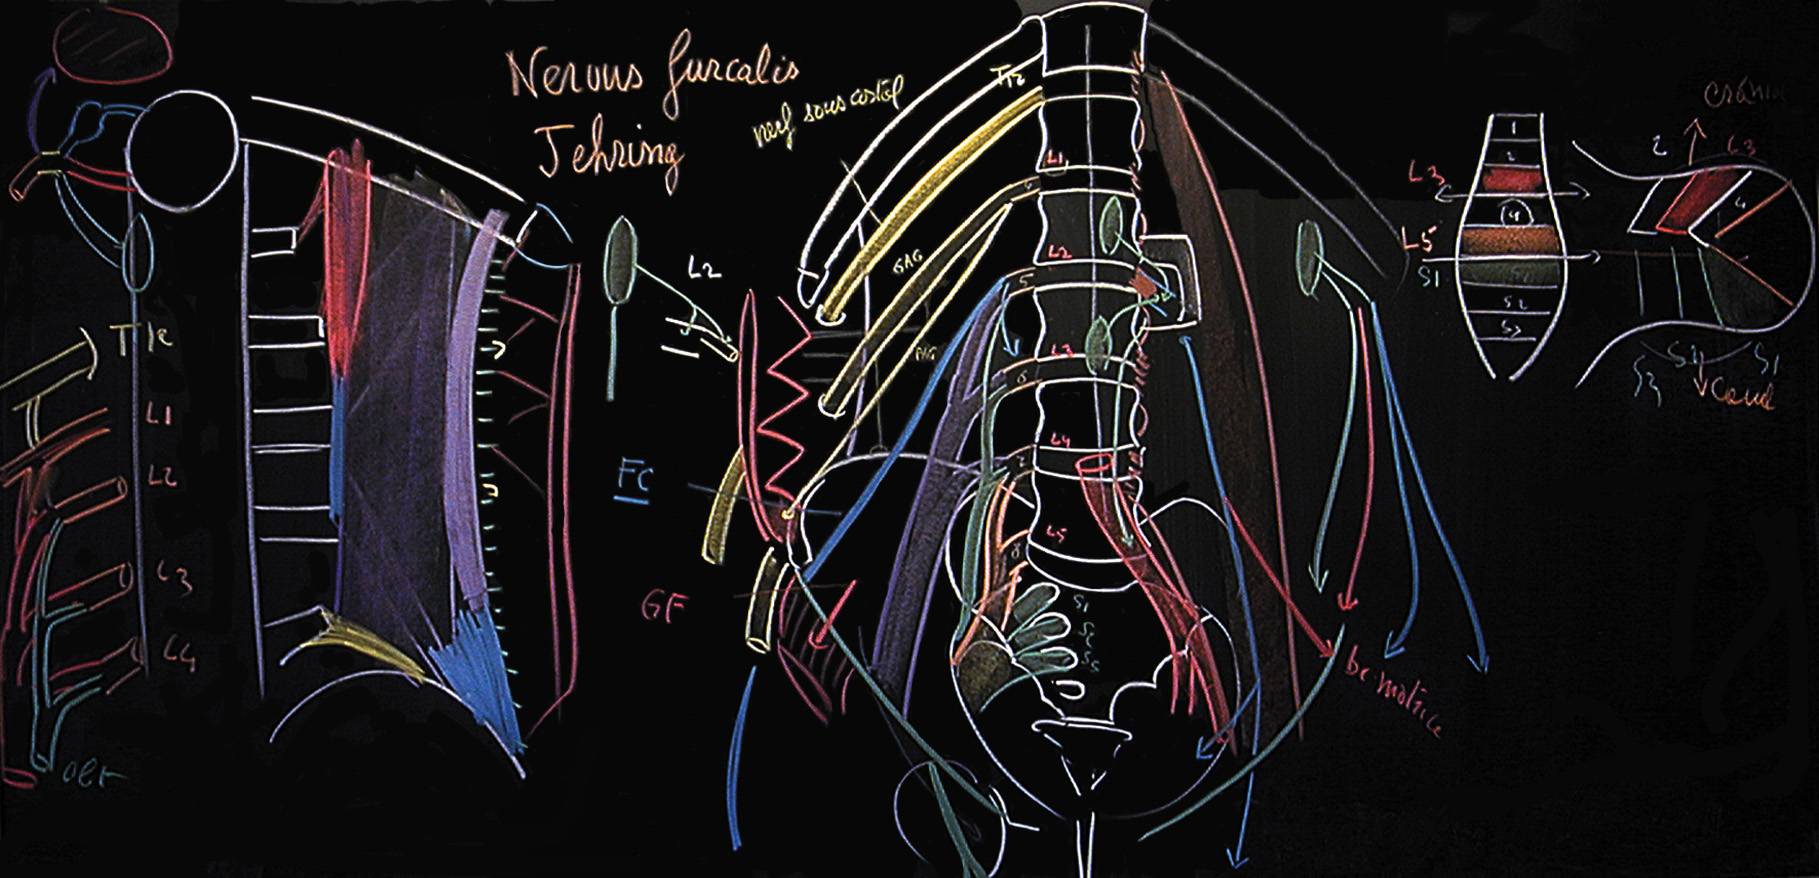 Nervus furcalis
Jehring
nerf sous costal
T12
L1
L2
L3
L4
L5
GAG
PAG
S1
L2
FC
GF
T12
L1
L2
L3
L4
OBT
br. motrice
1
2
L3
4
L5
S1
S1
S2
S3
crânial
2
L3
4
S3
S2
S1
Caud